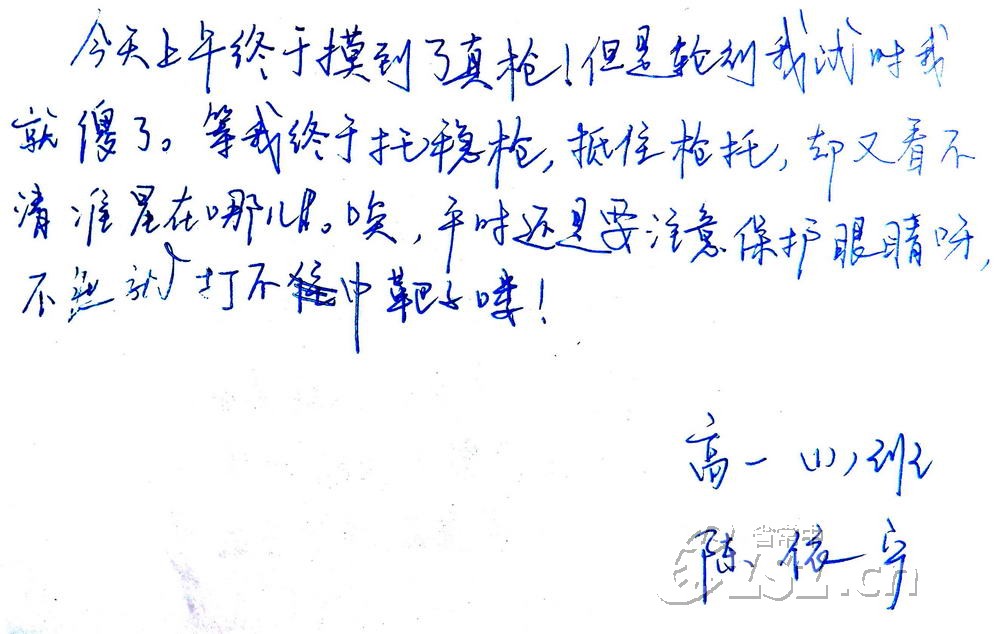 今天上午终于摸到了真枪！但是轮到我试时我
就傻了。等我终于托稳枪，抵住枪托，却又看不
清准星在哪儿。唉，平时还是要注意保护眼睛呀，
不然就打不中靶子喽！
高一(1)班
陈依宁
省常中
CZSZ.cn